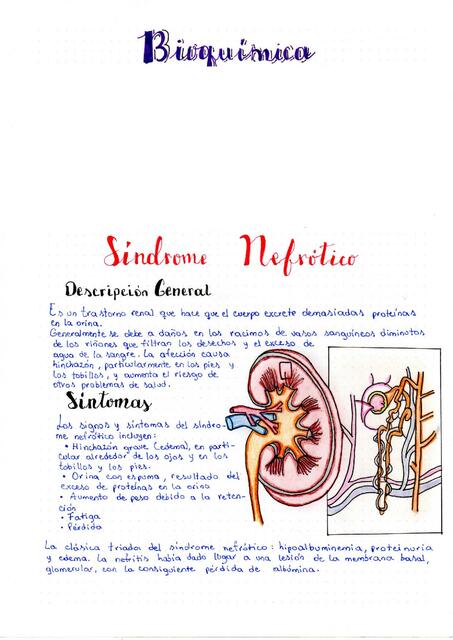 Bioquímica
Síndrome Nefrótico
Descripción General
Es un trastorno renal que hace que el cuerpo excrete demasiadas proteínas
en la orina.
Generalmente se debe a daños en los racimos de vasos sanguíneos diminutos
de los riñones que filtran los desechos y el exceso de
agua de la sangre. La afección causa
hinchazón, particularmente en los pies y
los tobillos, y aumenta el riesgo de
otros problemas de salud.
Síntomas
Los signos y síntomas del síndro-
me nefrótico incluyen:
• Hinchazón grave (edema), en parti-
cular alrededor de los ojos y en los
tobillos y los pies.
• Orina con espuma, resultado del
exceso de proteínas en la orina
• Aumento de peso debido a la reten-
ción
• Fatiga
• Pérdida
La clásica triada del síndrome nefrótico: hipoalbuminemia, proteinuria
y edema. La nefritis había dado lugar a una lesión de la membrana basal,
glomerular, con la consiguiente pérdida de albúmina.